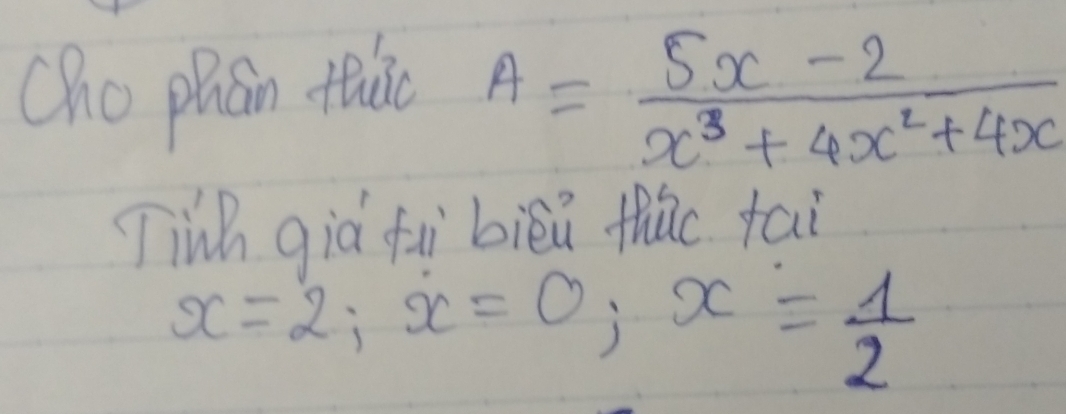 Cho phân thức A = \frac{5x - 2}{x^3 + 4x^2 + 4x}
Tính giá trị biểu thức tại
x = 2; x = 0; x = \frac{1}{2}